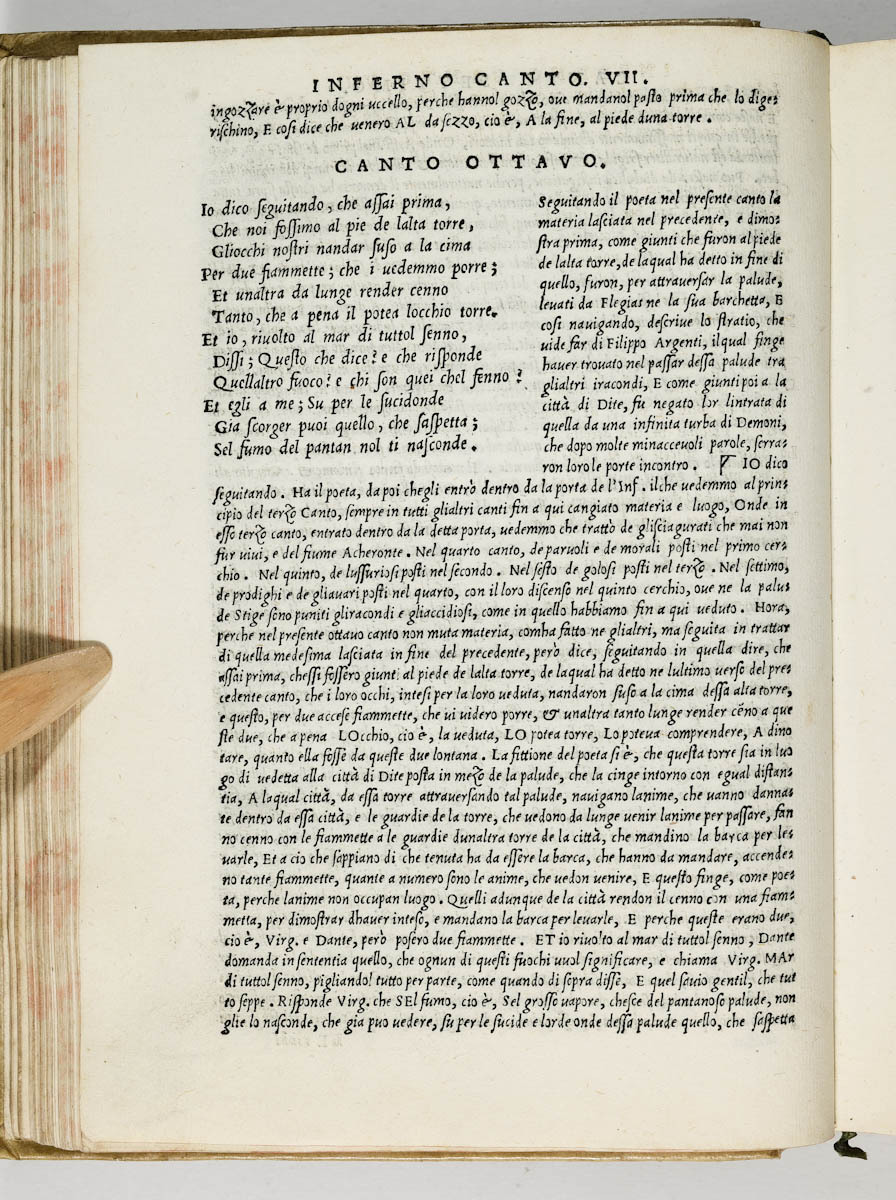 INFERNO CANTO. VII.
ingozzare è proprio dogni uccello, perche hannol gozzo, oue mandanol pasto prima che lo dige-
rischino, E cosi dice che uenero AL da sezzo, cio è, A la fine, al piede duna torre.
CANTO OTTAVO.
Io dico seguitando, che assai prima,
Che noi fossimo al pie de lalta torre,
Gliocchi nostri nandar suso a la cima
Per due fiammette; che i uedemmo porre;
Et unaltra da lunge render cenno
Tanto, che a pena il potea locchio torre.
Et io, riuolto al mar di tuttol senno,
Dissi; Questo che dice? e che risponde
Quellaltro fuoco? e chi son quei chel fenno?
Et egli a me; Su per le sucidonde
Gia scorger puoi quello, che saspetta;
Sel fumo del pantan nol ti nasconde.
Seguitando il poeta nel presente canto la
materia lasciata nel precedente, e dimo-
stra prima, come giunti che furon al piede
de lalta torre, de laqual ha detto in fine di
quello, furon, per attrauersar la palude,
leuati da Flegias ne la sua barchetta, E
cosi nauigando, descriue lo stratio, che
uide far di Filippo Argenti, ilqual finge
hauer trouato nel passar dessa palude tra
glialtri iracondi, E come giunti poi a la
città di Dite, fu negato lor lintrata di
quella da una infinita turba di Demoni,
che dopo molte minacceuoli parole, serra-
ron loro le porte incontro. IO dico
seguitando. Ha il poeta, da poi chegli entrò dentro da la porta de l'Inf. ilche uedemmo al prin-
cipio del terzo Canto, sempre in tutti glialtri canti fin a qui cangiato materia e luogo, Onde in
esso terzo canto, entrato dentro da la detta porta, uedemmo che trattò de glisciagurati che mai non
fur uiui, e del fiume Acheronte. Nel quarto canto, de paruoli e de morali posti nel primo cer-
chio. Nel quinto, de lussuriosi posti nel secondo. Nel sesto de golosi posti nel terzo. Nel settimo,
de prodighi e de gliauari posti nel quarto, con il loro discenso nel quinto cerchio, oue ne la palu-
de Stige sono puniti gliracondi e gliaccidiosi, come in quello habbiamo fin a qui ueduto. Hora,
perche nel presente ottauo canto non muta materia, comha fatto ne glialtri, ma seguita in trattar
di quella medesima lasciata in fine del precedente, però dice, seguitando in quella dire, che
assai prima, chessi fossero giunti al piede de lalta torre, de laqual ha detto ne lultimo uerso del pre-
cedente canto, che i loro occhi, intesi per la loro ueduta, nandaron suso a la cima dessa alta torre,
e questo, per due accese fiammette, che ui uidero porre, & unaltra tanto lunge render cẽno a que
ste due, che a pena LOcchio, cio è, la ueduta, LO potea torre, Lo poteua comprendere, A dino
tare, quanto ella fosse da queste due lontana. La fittione del poeta si è, che questa torre sia in luo
go di uedetta alla città di Dite posta in mezo de la palude, che la cinge intorno con egual distan-
tia, A laqual città, da essa torre attrauersando tal palude, nauigano lanime, che uanno danna-
te dentro da essa città, e le guardie de la torre, che uedono da lunge uenir lanime per passare, fan
no cenno con le fiammette a le guardie dunaltra torre de la città, che mandino la barca per le-
uarle, Et a cio che sappiano di che tenuta ha da essere la barca, che hanno da mandare, accende-
no tante fiammette, quante a numero sono le anime, che uedon uenire, E questo finge, come poe-
ta, perche lanime non occupan luogo. Quelli adunque de la città rendon il cenno con una fiam-
metta, per dimostrar dhauer inteso, e mandano la barca per leuarle, E perche queste erano due,
cio è, Virg. e Dante, però posero due fiammette. ET io riuolto al mar di tuttol senno, Dante
domanda in sententia quello, che ognun di questi fuochi uuol significare, e chiama Virg. MAr
di tuttol senno, pigliandol tutto per parte, come quando di sopra disse, E quel sauio gentil, che tut
to seppe. Risponde Virg. che SEl fumo, cio è, Sel grosso uapore, chesce del pantanoso palude, non
glie lo nasconde, che gia puo uedere, su per le sucide e lorde onde dessa palude quello, che saspetta